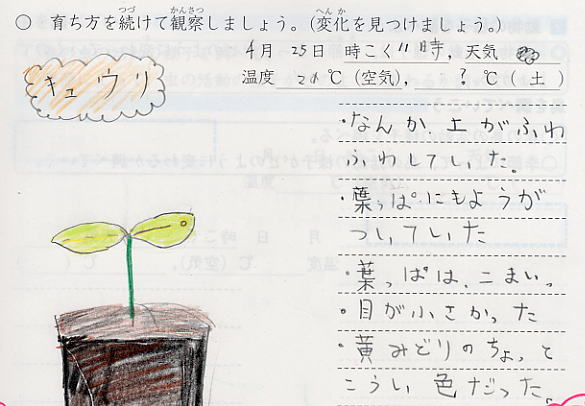 ○ 育ち方を続けて観察しましょう。(変化を見つけましょう。)
4月 25日 時こく 11時, 天気
温度 ℃ (空気), ? ℃ (土)
キュウリ
・なんか、土がふわ
ふわしていた。
・葉っぱにもようが
ついていた
・葉っぱは、こまい。
・目が小さかった
・黄みどりのちょっと
こうい色だった。